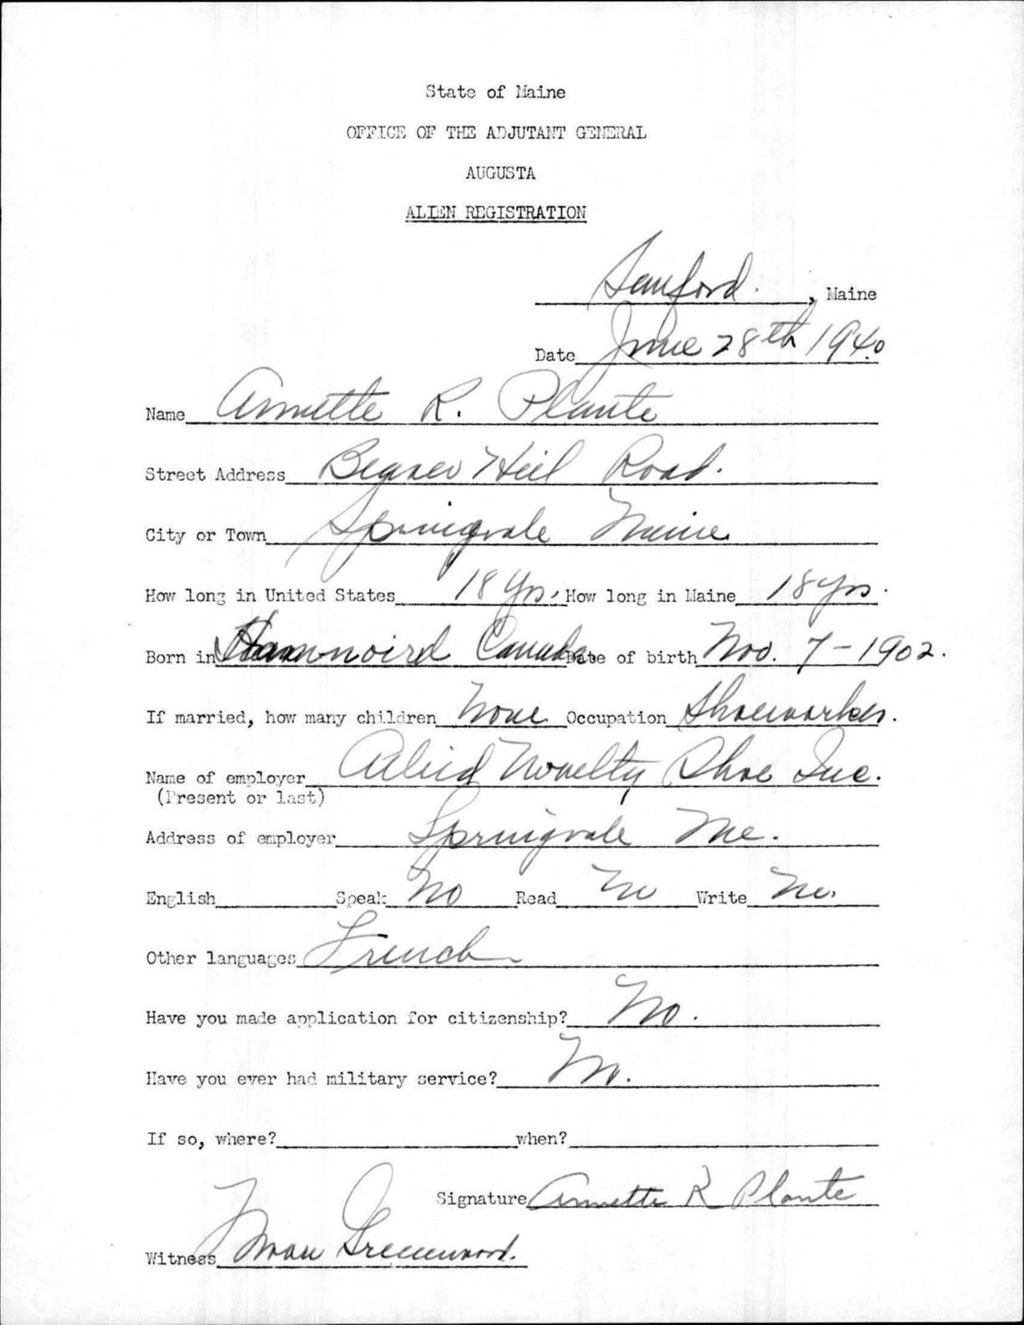 State of Maine
OFFICE OF THE ADJUTANT GENERAL
AUGUSTA
ALIEN REGISTRATION
Sanford. , Maine
Date June 28th 1940
Name Annette R. Plante
Street Address Beaver Hill Road.
City or Town Springvale Maine.
How long in United States 18 Yrs. How long in Maine 18 yrs.
Born in Canada. Date of birth Nov. 7-1902.
If married, how many children None Occupation Shoeworker.
Name of employer Novelty Shoe Inc.
(Present or last)
Address of employer Springvale Me.
English Speak No Read No Write No.
Other languages French
Have you made application for citizenship? No.
Have you ever had military service? No.
If so, where? when?
Signature Annette R Plante
Witness Greenwood.